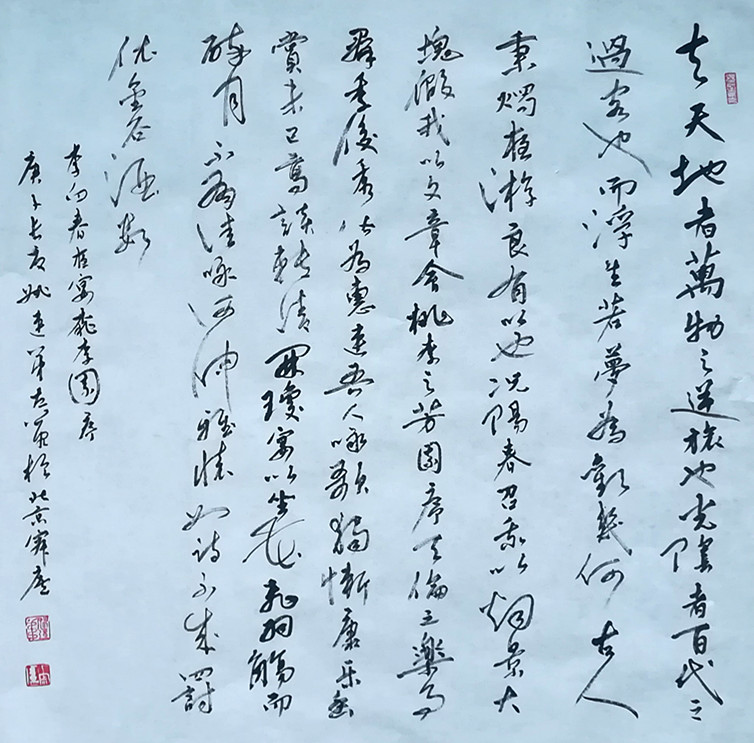 夫天地者萬物之逆旅也光陰者百代之
過客也而浮生若夢為歡幾何古人
秉燭夜游良有以也况陽春召我以烟景大
塊假我以文章會桃李之芳園序天倫之樂事
群季俊秀皆為惠連吾人咏歌獨慚康樂幽
賞未已高談轉清開瓊宴以坐花飛羽觴而
醉月不有佳咏何伸雅懷如詩不成罰
依金谷酒數
李白春夜宴桃李園序
庚子長夏姚於北京